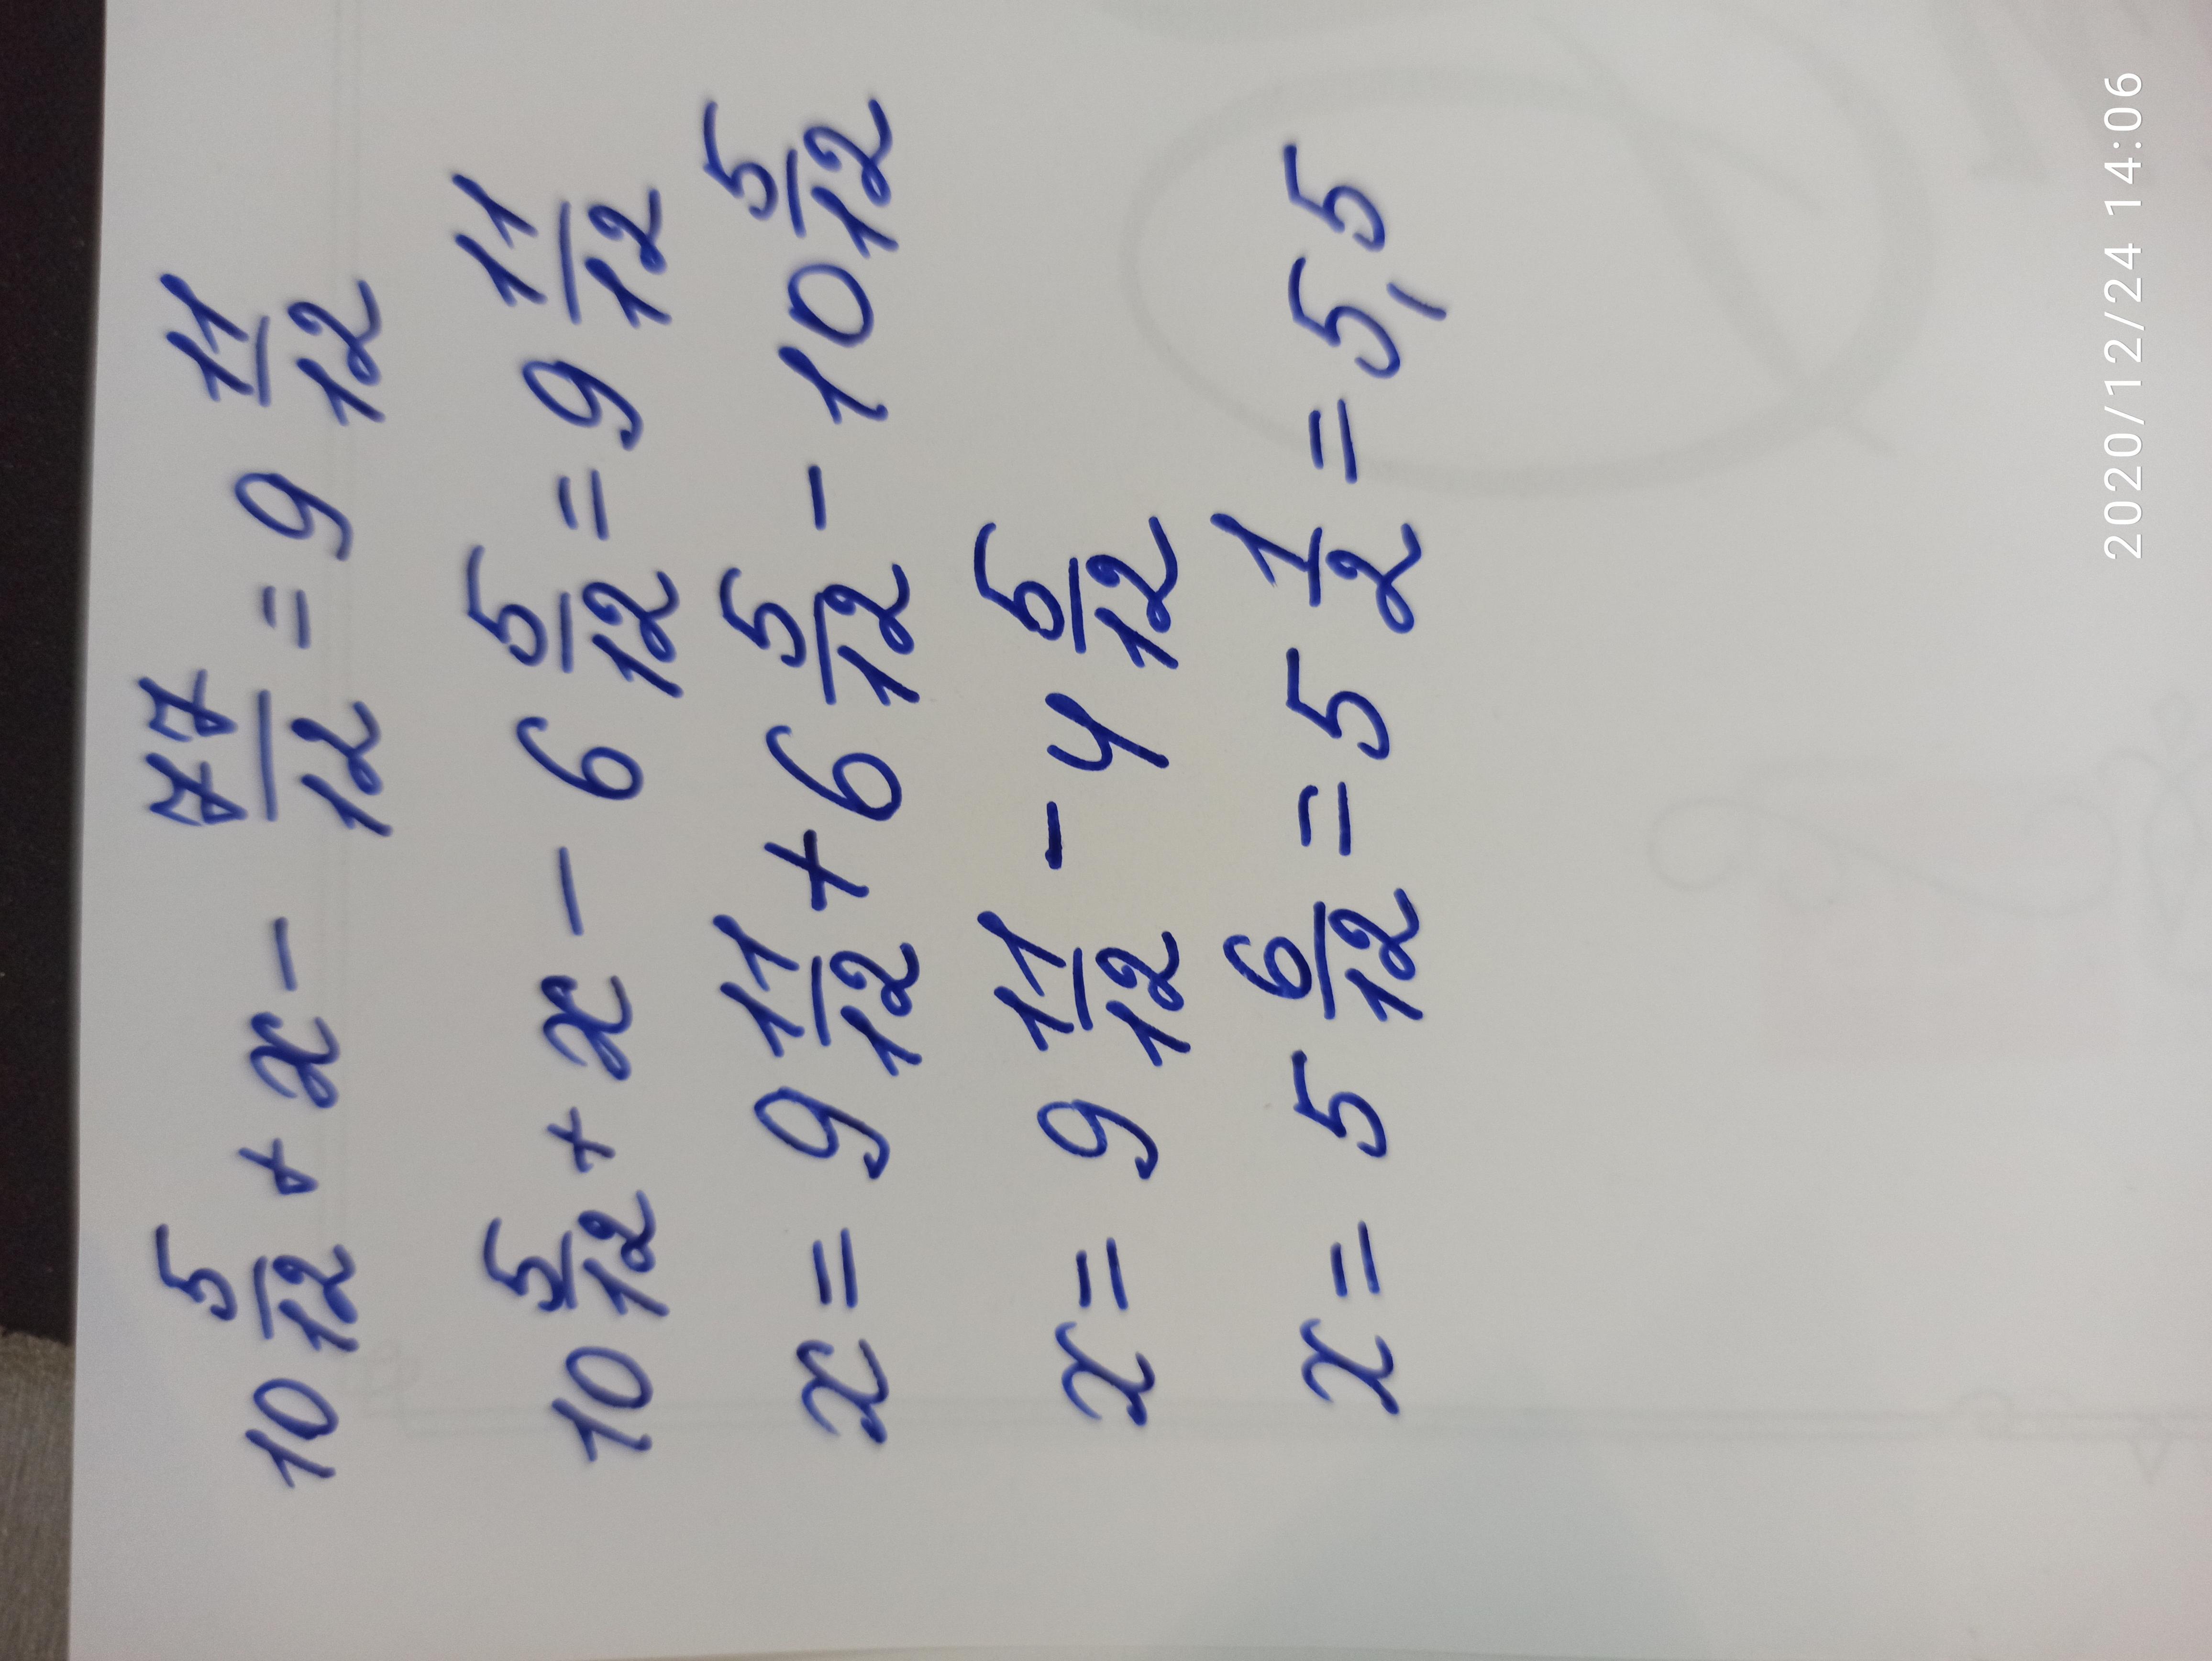 10 5/12 + x - 77/12 = 9 11/12
10 5/12 + x - 6 5/12 = 9 11/12
x = 9 11/12 + 6 5/12 - 10 5/12
x = 9 11/12 - 4 5/12
x = 5 6/12 = 5 1/2 = 5,5
2020/12/24 14:06